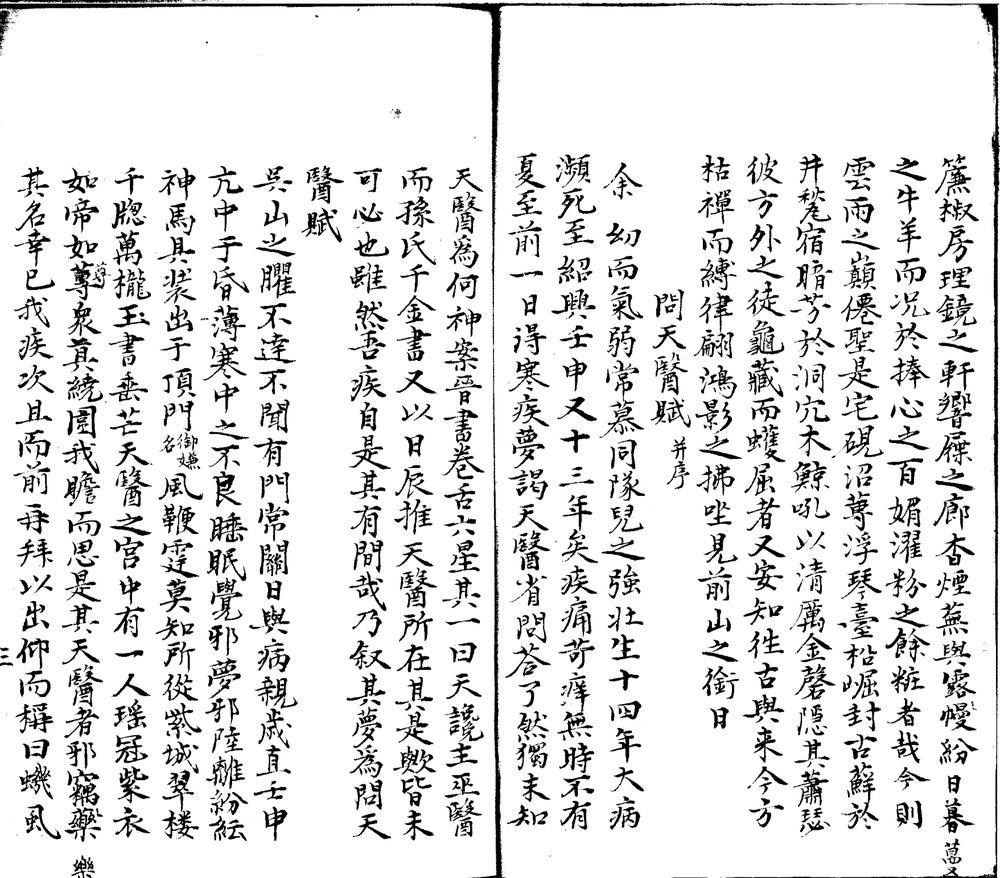 簾椒房理鏡之軒響屧之廊杳煙蕪與露幔紛日暮
之牛羊而況於捧心之百媚濯粉之餘粧者哉今則
雲雨之巔僊聖是宅硯沼蓴浮琴臺松崛封古蘚於
井甃宿暗芳於洞穴木鯨吼以清厲金磬隱其蕭瑟
彼方外之徒龜藏而蠖屈者又安知徃古與来今方
枯禪而縛律翩鴻影之拂坐見前山之銜日
問天醫賦 并序
余幼而氣弱常慕同隊兒之強壯生十四年大病
瀕死至紹興壬申又十三年矣疾痛苛癢無時不有
夏至前一日得寒疾夢謁天醫省問荅了然獨未知
天醫爲何神案晉書卷舌六星其一曰天讒主巫醫
而孫氏千金書又以日辰推天醫所在其是歟皆未
可必也雖然吾疾自是其有間哉乃叙其夢爲問天
醫賦
吳山之臞不達不聞有門常關日與病親歲直壬申
亢中于昏薄寒中之不良睡眠覺邪夢邪陸離紛紜
神馬具裝出于頂門御嫌名風鞭霆莫知所從紫城翠楼
千牕萬櫳玉書垂芒天醫之宮中有一人瑶冠紫衣
如帝如尊衆真繞圍我瞻而思是其天醫者邪竊藥
樂
其名幸已我疾次且而前再拜以出仰而稱曰蟣虱
三